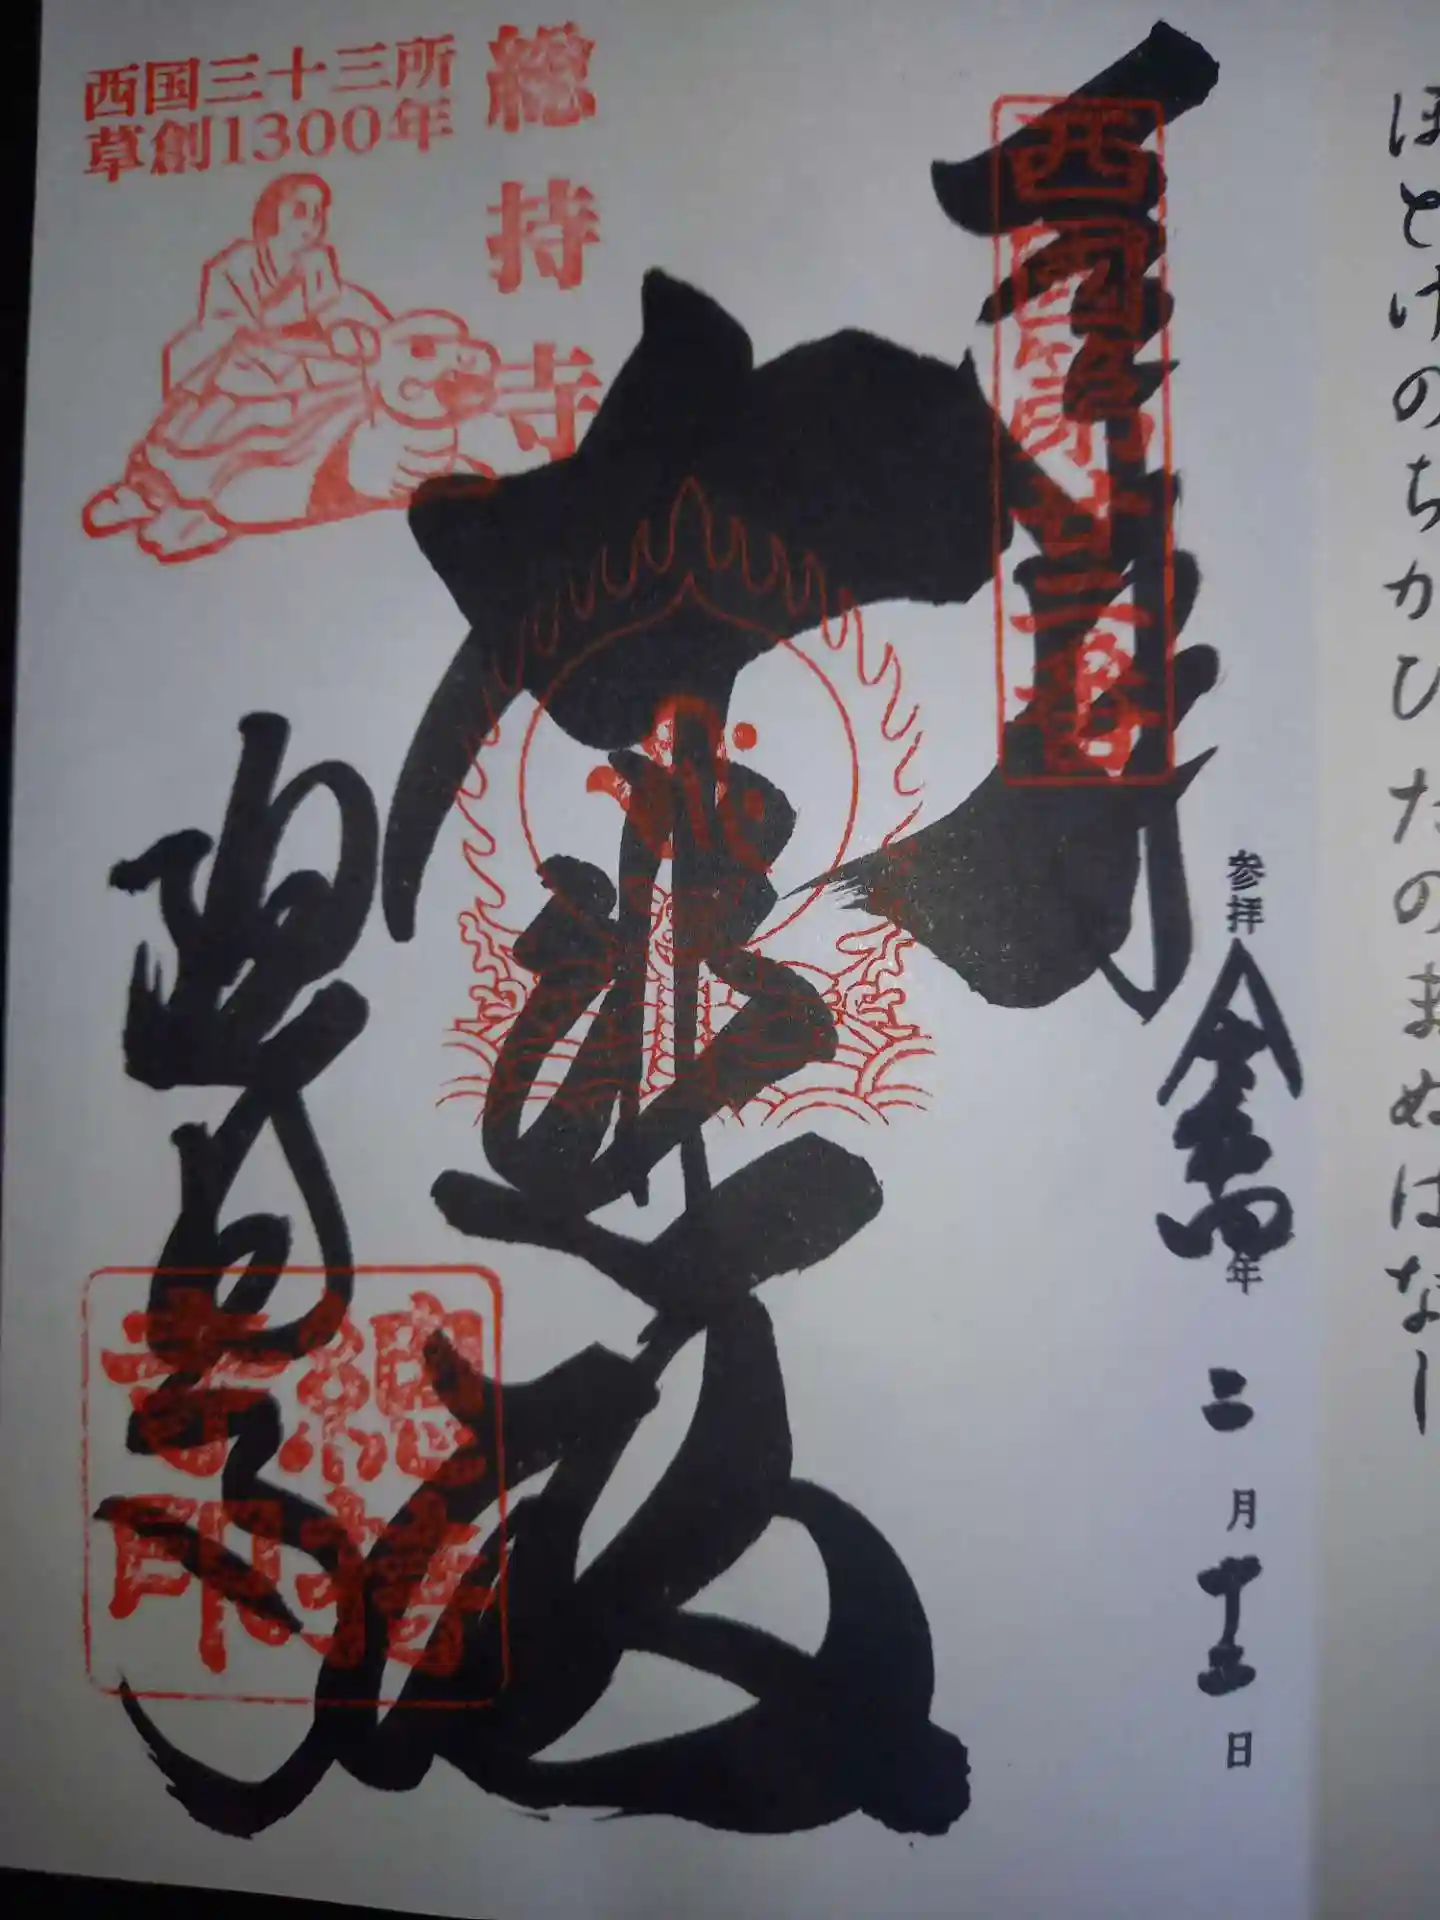 ほとけのちかひたのまぬはなし
奉拝
西国第廿二番
参拝 令和四年 二月十三日
大悲殿
総持寺
西国三十三所
草創1300年
総持寺
總持
寺印